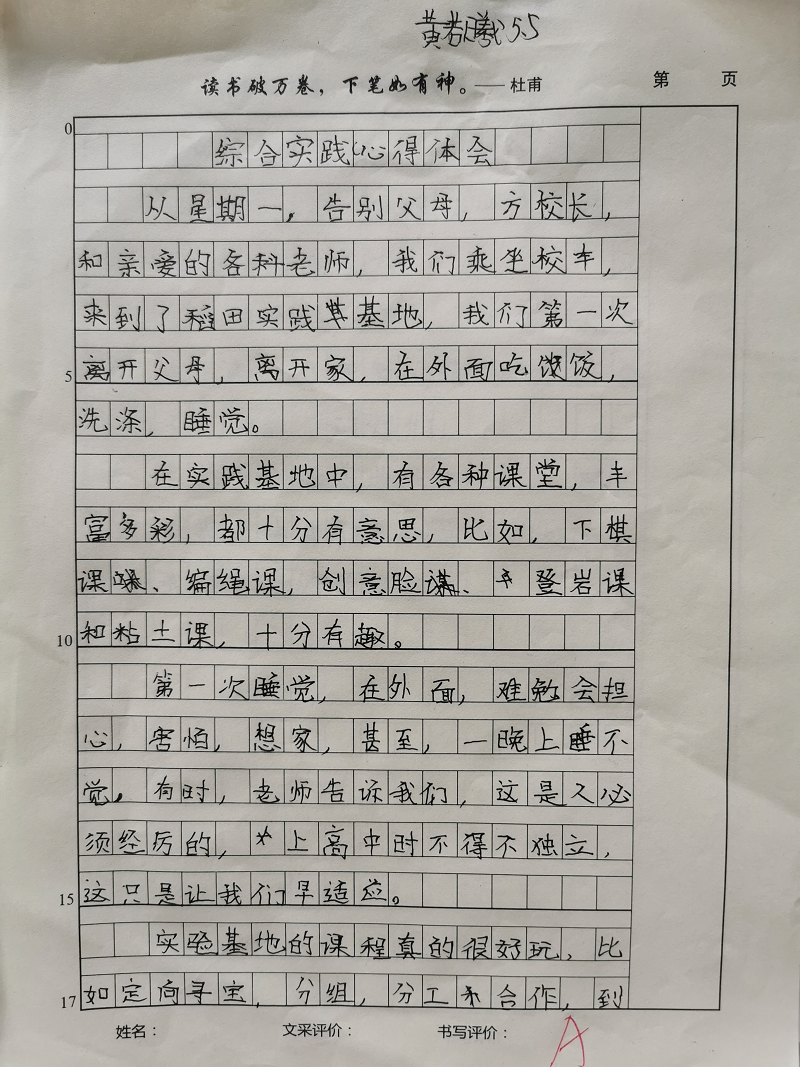 黄若曦 55
读书破万卷，下笔如有神。——杜甫
第 页
0
综合实践心得体会
从星期一，告别父母，方校长，
和亲爱的各科老师，我们乘坐校车，
来到了稻田实践基地，我们第一次
离开父母，离开家，在外面吃饭，
5
洗涤，睡觉。
在实践基地中，有各种课堂，丰
富多彩，都十分有意思，比如，下棋
课、编绳课，创意脸谱、登岩课
和粘土课，十分有趣。
10
第一次睡觉，在外面，难勉会担
心，害怕，想家，甚至，一晚上睡不
觉，有时，老师告诉我们，这是人必
须经厉的，上高中时不得不独立，
这只是让我们早适应。
15
实验基地的课程真的很好玩，比
如定向寻宝，分组，分工合作，到
17
姓名： 文采评价： 书写评价：
A